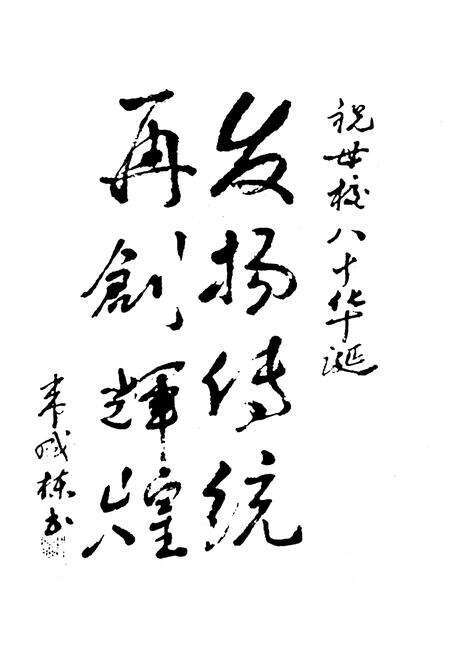 祝母校八十华诞
发扬传统
再創輝煌
韦成栋书